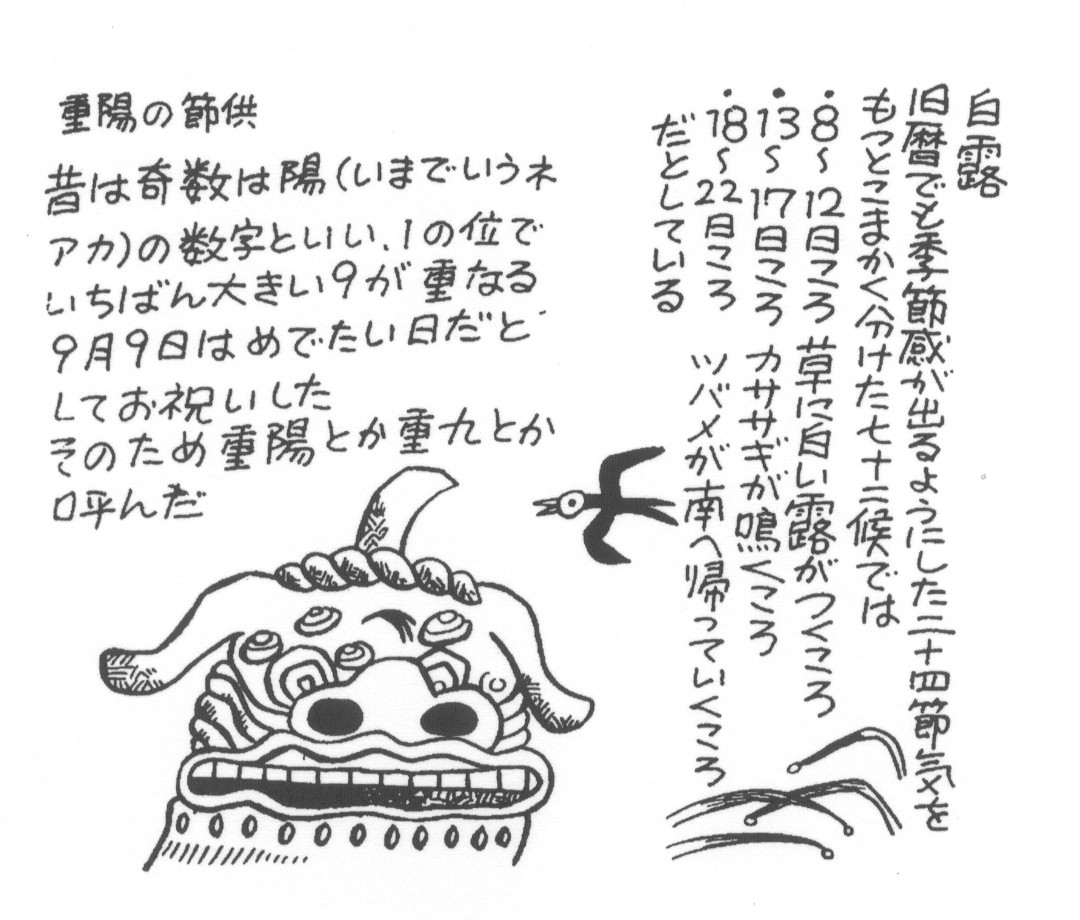 白露
旧暦でも季節感が出るようにした二十四節気を
もっとこまかく分けた七十二候では
・8〜12日ころ 草に白い露がつくころ
・13〜17日ころ カササギが鳴くころ
・18〜22日ころ ツバメが南へ帰っていくころ
だとしている
重陽の節供
昔は奇数は陽(いまでいうネ
アカ)の数字といい、1の位で
いちばん大きい9が重なる
9月9日はめでたい日だと
してお祝いした
そのため重陽とか重九とか
呼んだ